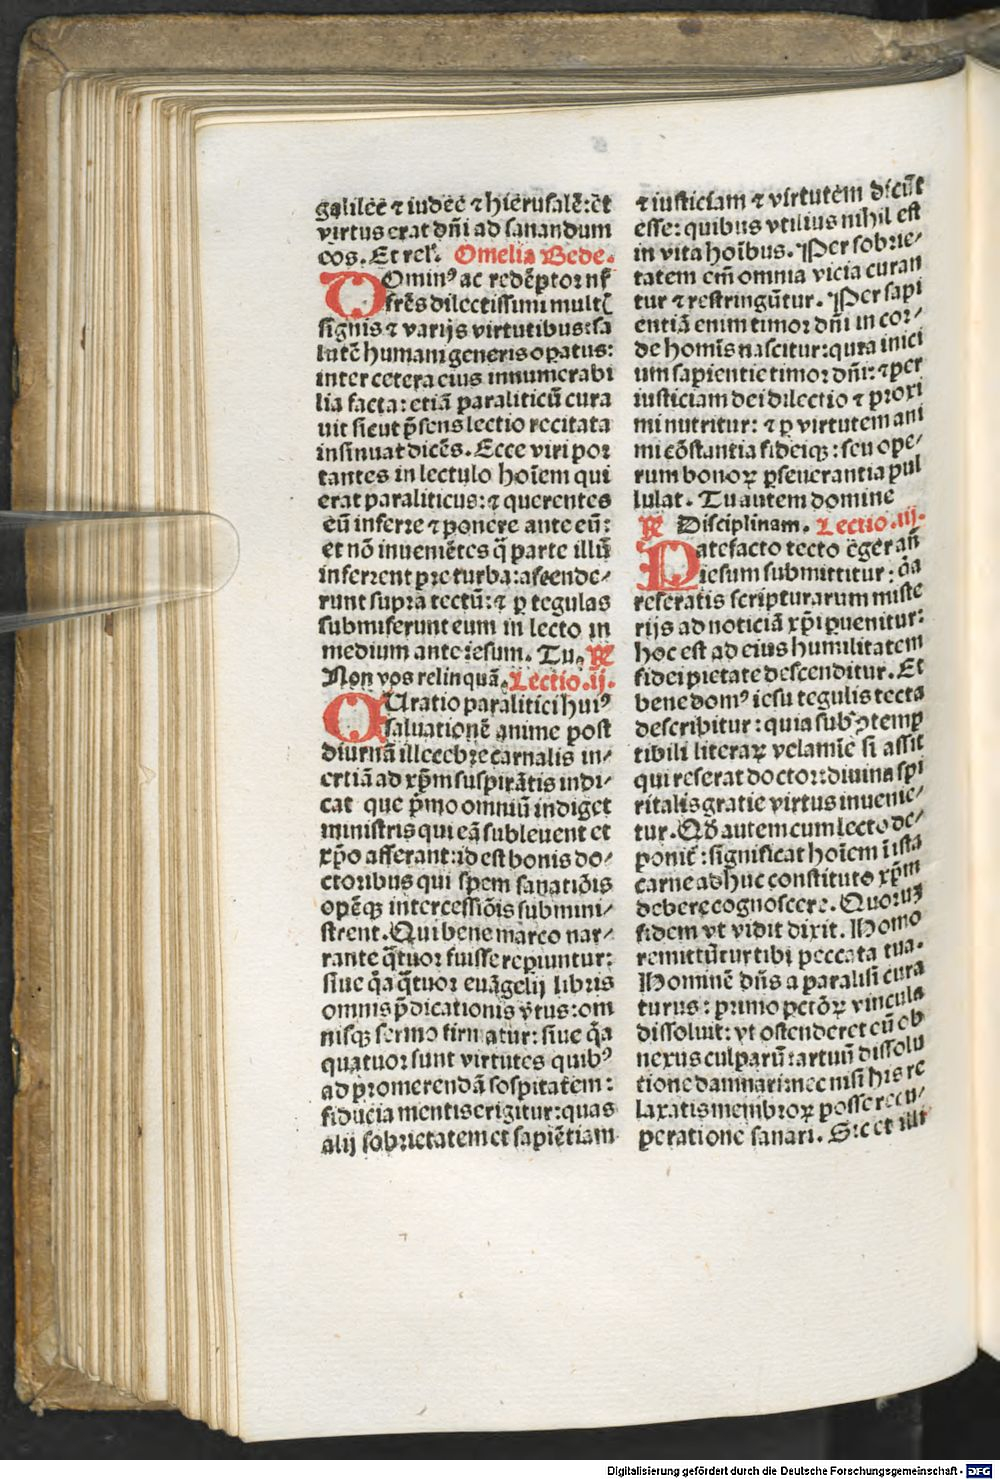 galileę ⁊ iudeę ⁊ hierusalē: et
virtus erat dn̄i ad sanandum
eos. Et rel. Omelia Bede.
DOmin⁹ ac redēptor nr̄
fr̄es dilectissimi multꝭ
signis ⁊ varijs virtutibus: sa
lutē humani generis oꝑatus:
inter cetera eius innumerabi
lia facta: etiā ꝑaliticū cura
uit sicut p̄sens lectio recitata
insinuat dicēs. Ecce viri por
tantes in lectulo hoīem qui
erat paraliticus: ⁊ querentes
eū inferre ⁊ ponere ante eū:
et nō inueniētes q̄ parte illū
inferrent pre turba: ascende⸗
runt supra tectū: ⁊ ꝑ tegulas
submiserunt eum in lecto in
medium ante iesum. Tu. ℟
Non vos relinquā. Lectio .ij.
CUratio paralitici hui⁹
saluationē anime post
diurnā illecebre carnalis in⸗
ertiā ad xp̄m suspirātis indi⸗
cat que p̄mo omniū indiget
ministris qui eā subleuent et
xp̄o afferant: id est bonis do⸗
ctoribus qui spem sanatiōis
opēqꝫ intercessiōis submini⸗
strent. Qui bene marco nar⸗
rante q̄tuor fuisse repiuntur:
siue q̄a q̄tuor euāgelij libris
omnis p̄dicationis v̄tus: om
nisqꝫ sermo firmatur: siue q̄a
quatuor sunt virtutes quib⁹
ad promerendā sospitatem:
fiducia mentis erigitur: quas
alij sobrietatem et sapiētiam
⁊ iusticiam ⁊ virtutem dicūt
esse: quibus vtilius nihil est
in vita hoībus. Per sobrie⸗
tatem em̄ omnia vicia curan
tur ⁊ restringūtur. Per sapi
entiā enim timor dn̄i in cor⸗
de homīs nascitur: quia inici
um sapientie timor dn̄i: ⁊ per
iusticiam dei dilectio ⁊ proxi
mi nutritur: ⁊ ꝑ virtutem ani
mi cōstantia fideiqꝫ: seu ope⸗
rum bonoꝝ pseuerantia pul
lulat. Tu autem domine
℟ Disciplinam. Lectio .iij.
PAtefacto tecto eger an̄
iesum submittitur: q̄a
reseratis scripturarum miste
rijs ad noticiā xp̄i ꝑuenitur:
hoc est ad eius humilitatem
fidei pietate descenditur. Et
bene dom⁹ iesu tegulis tecta
describitur: quia sub ꝯtemp
tibili literaꝝ velamīe si assit
qui reserat doctor: diuina spi
ritalis gratie virtus inuenie⸗
tur. Qd̄ autem cum lecto de⸗
ponit̄: significat hoīem ī ista
carne adhuc constituto xp̄m
debere cognoscere. Quoruꝫ
fidem vt vidit dixit. Homo
remittūtur tibi peccata tua.
Hominē dn̄s a paralisi cura
turus: primo pctōꝝ vincula
dissoluit: vt ostenderet eū ob
nexus culparū: artuū dissolu
tione damnari: nec nisi his re
laxatis membroꝝ posse recu⸗
peratione sanari. Sic et illi
Digitalisierung gefördert durch die Deutsche Forschungsgemeinschaft - DFG